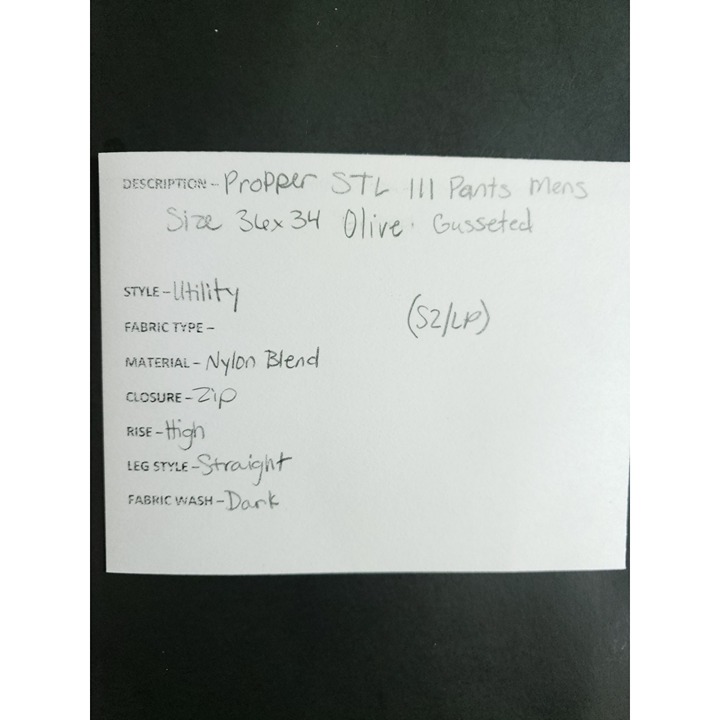 DESCRIPTION - Propper STL III Pants Mens
Size 36x34 Olive. Gusseted
STYLE - Utility
(S2/LP)
FABRIC TYPE -
MATERIAL - Nylon Blend
CLOSURE - Zip
RISE - High
LEG STYLE - Straight
FABRIC WASH - Dark